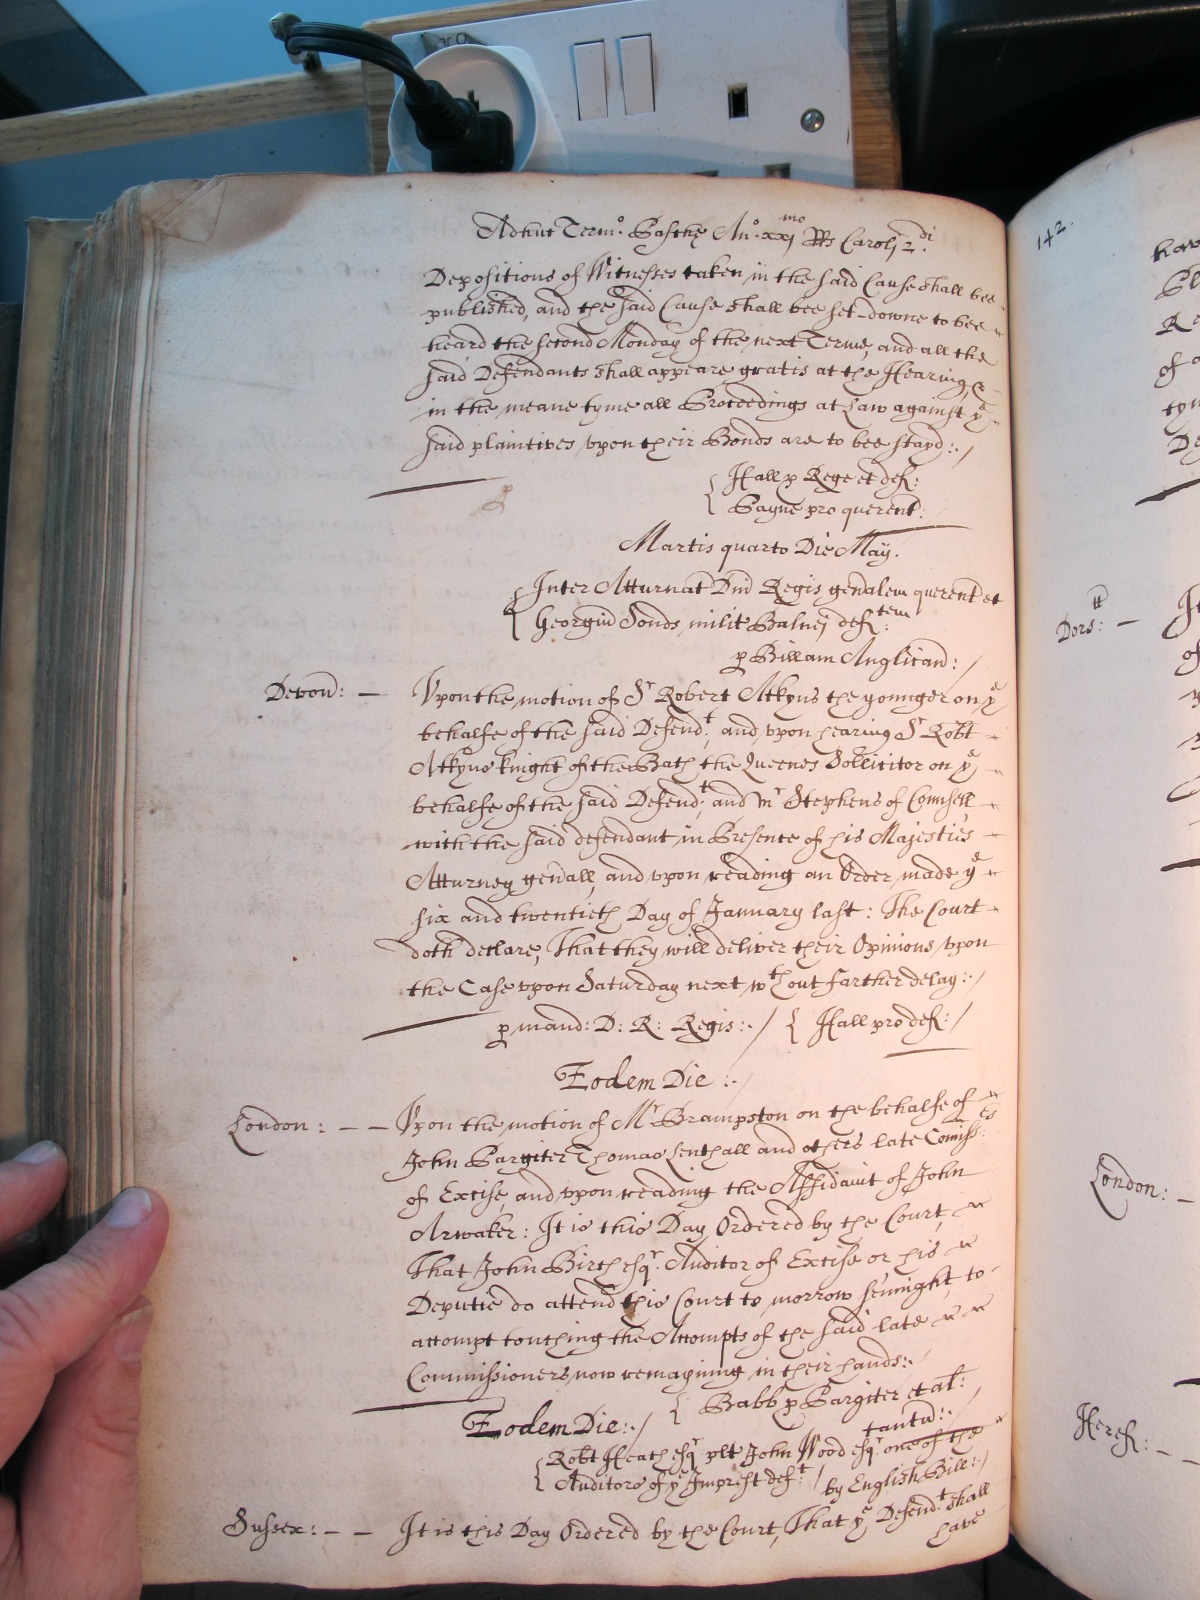 Adhuc Term:o Pasche An:o xxjmo RRs Caroli 2:di
Depositions of Witnesses taken in the said Cause shall bee
published, and the said Cause shall bee set downe to bee
heard the second Monday of the next Terme, and all the
said Defendants shall appeare gratis at the Hearing, &
in the meane tyme all Proceedings at Law against ye
said plaintives vpon their Bonds are to bee stayd:./
Hall p Rege et def:
Payne pro querent:
Martis quarto Die Maij.
Inter Atturnat Dni Regis genalem querent et
Georgiu Sonds milit Balnej deftem:
p Billam Anglican: /
Devon: — Vpon the motion of Sr Robert Atkyns the younger on ye
behalfe of the said Defendt: and vpon hearing Sr Robt
Atkyns Knight of the Bath the Queenes Sollicitor on ye
behalfe of the said Defendt: and Mr Stephens of Counsell
with the said defendant in Presence of his Majesties
Atturney genall, and vpon reading an Order made ye
six and twentieth Day of January last: The Court
doth declare, That they will deliver their Opinions vpon
the Case vpon Saturday next wthout farther delay:./
p mand: D: R: Regis:./ { Hall pro def: /
Eodem Die :./
London: — — Vpon the motion of Mr Brampston on the behalfe of
John Pargiter Thomas Lenthall and others late Comisses:
of Excise, and vpon reading the Affidavit of John
Arwaker: It is this Day Ordered by the Court,
That John Birch esqr. Auditor of Excise or his
Deputie do attend this Court to morrow sennight, to
attompt touching the Attompts of the said late
Commissioners now remayning in their hands:./
Babb p Pargiter et al:
tantu:.
Eodem Die:./
Robt Heath esqr plt John Wood esqr one of the
Auditors of ye Imprest deft: / by English Bill:./
Sussex: — — It is this Day Ordered by the Court, That ye Defendt: shall
have
142.
Dors:tt —
London: —
Heref: —